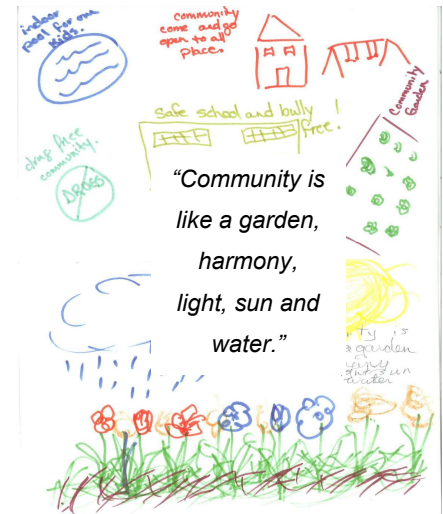 indoor
pool for our
kids.
community
come and go
open to all
place.
Community
Garden
Safe school and bully
free!
drug free
community.
DRUGS
“Community is
like a garden,
harmony,
light, sun and
water.”
ty is
garden
sun
water